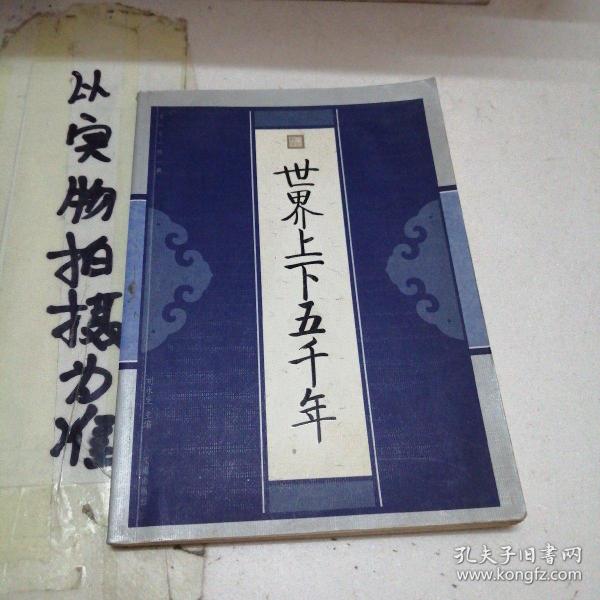 以实物拍摄为准
世界上下五千年
孔夫子旧书网
www.kongfz.com